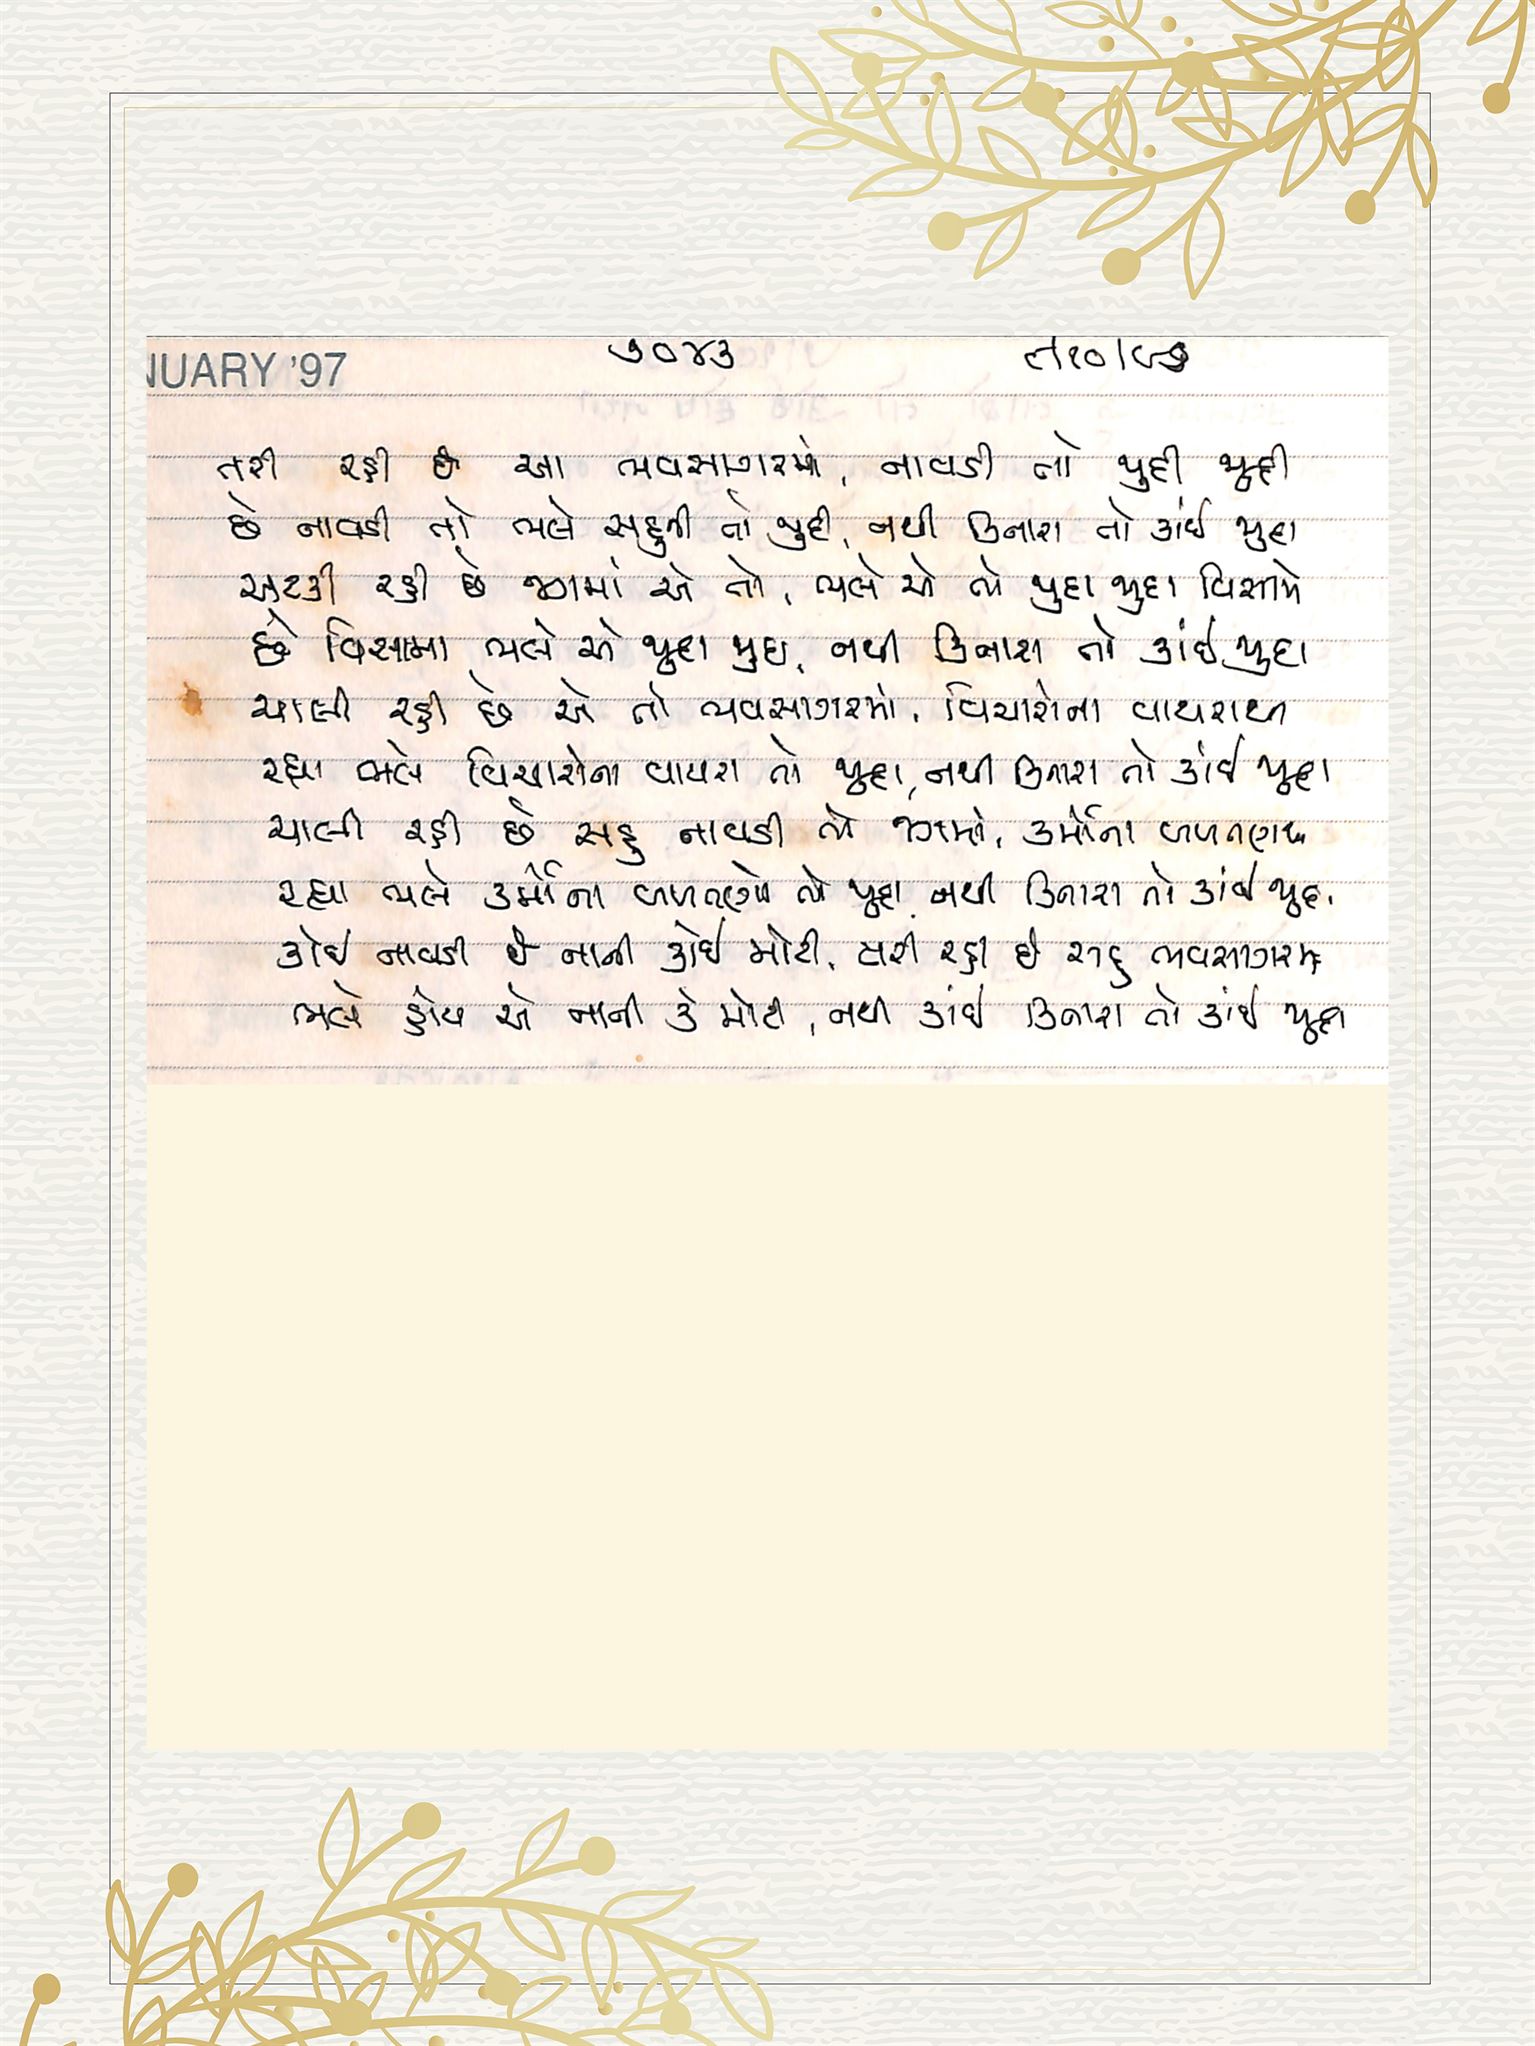 NUARY '97
૭૦૪૩
તરી રહી છે આ ભવસાગરમાં, નાવડી તો જુદી જુદી
છે નાવડી તો ભલે સહુની તો જુદી, નથી કિનારા તો કાંઈ જુદા
અટકી રહી છે જગમાં એ તો, ભલે એ તો જુદા જુદા વિસામે
છે વિસામા ભલે એ જુદા જુદા, નથી કિનારા તો કાંઈ જુદા
ચાલી રહી છે એ તો ભવસાગરમાં, વિચારોના વાયરાથી
રહ્યા ભલે વિચારોના વાયરા તો જુદા, નથી કિનારા તો કાંઈ જુદા
ચાલી રહી છે સહુ નાવડી તો જગમાં, કર્મોના બળતણથી
રહ્યા ભલે કર્મોના બળતણો તો જુદા, નથી કિનારા તો કાંઈ જુદા.
કોઈ નાવડી છે નાની કોઈ મોટી, તરી રહી છે સહુ ભવસાગરમાં
ભલે હોય એ નાની કે મોટી, નથી કાંઈ કિનારા તો કાંઈ જુદા